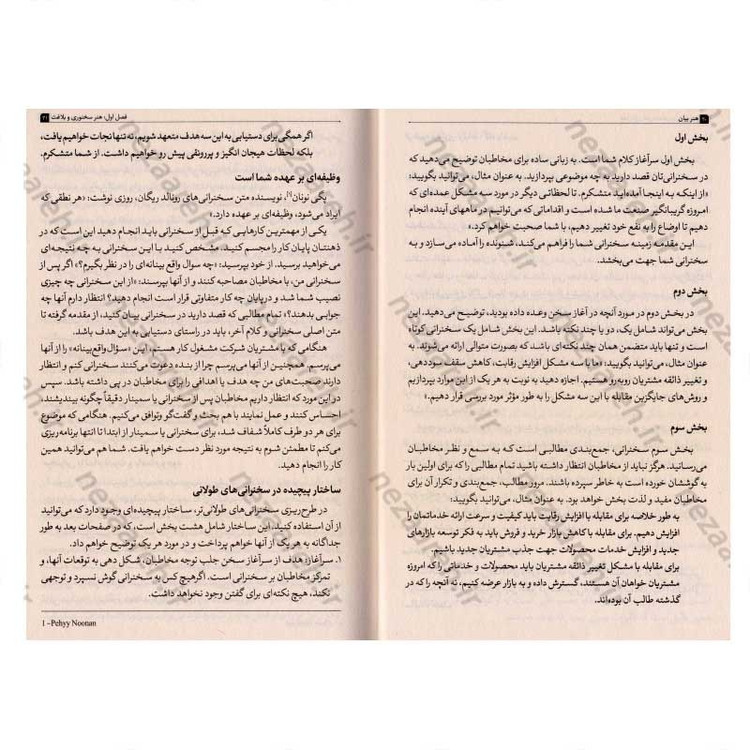 ۲۰ هنر بیان
بخش اول
بخش اول سرآغاز کلام شما است. به زبانی ساده برای مخاطبان توضیح می‌دهید که
در سخنرانی‌تان قصد دارید به چه موضوعی بپردازید. به عنوان مثال، می‌توانید بگویید:
«از اینکه به اینجا آمده‌اید متشکرم. تا لحظاتی دیگر در مورد سه مشکل عمده‌ای که
امروزه گریبانگیر صنعت ما شده است و اقداماتی که می‌توانیم در ماههای آینده انجام
دهیم تا اوضاع را به نفع خود تغییر دهیم، با شما صحبت خواهم کرد.»
این مقدمه زمینه سخنرانی شما را فراهم می‌کند، شنونده را آماده می‌سازد و به
سخنرانی شما جهت می‌بخشد.
بخش دوم
در بخش دوم در مورد آنچه در آغاز سخن وعده داده بودید، توضیح می‌دهید. این
بخش می‌تواند شامل یک، دو یا چند نکته باشد. این بخش شامل یک سخنرانی کوتاه
است و تنها باید متضمن همان چند نکته‌ای باشد که بصورت متوالی ارائه می‌شوند. به
عنوان مثال، می‌توانید بگویید: «ما با سه مشکل افزایش رقابت، کاهش سقف سوددهی،
و تغییر ذائقه مشتریان روبه‌رو هستیم. اجازه دهید به نوبت به هر یک از این موارد بپردازیم
و روش‌های جایگزین مقابله با این سه مشکل را به طور مؤثر مورد بررسی قرار دهیم.»
بخش سوم
بخش سوم سخنرانی، جمع‌بندی مطالبی است که به سمع و نظر مخاطبان
می‌رسانید. هرگز نباید از مخاطبان انتظار داشته باشید تمام مطالبی را که برای اولین بار
به گوششان خورده است به خاطر سپرده باشند. مرور مطالب، جمع‌بندی و تکرار آن برای
مخاطبان مفید و لذت بخش خواهد بود. به عنوان مثال، می‌توانید بگویید:
به طور خلاصه برای مقابله با افزایش رقابت باید کیفیت و سرعت ارائه خدماتمان را
افزایش دهیم. برای مقابله با کاهش بازار خرید و فروش باید به فکر توسعه بازارهای
جدید و افزایش خدمات محصولات جهت جذب مشتریان جدید باشیم.
برای مقابله با مشکل تغییر ذائقه مشتریان باید محصولات و خدماتی را که امروزه
مشتریان خواهان آن هستند، گسترش داده و به بازار عرضه کنیم، نه آنچه را که در
گذشته طالب آن بوده‌اند.
فصل اول: هنر سخنوری و بلاغت ۲۱
اگر همگی برای دستیابی به این سه هدف متعهد شویم، نه تنها نجات خواهیم یافت،
بلکه لحظات هیجان انگیز و پررونقی پیش رو خواهیم داشت. از شما متشکرم.
وظیفه‌ای بر عهده شما است
پگی نونان⁽¹⁾، نویسنده متن سخنرانی‌های رونالد ریگان، روزی نوشت: «هر نطقی که
ایراد می‌شود، وظیفه‌ای بر عهده دارد.»
یکی از مهمترین کارهایی که قبل از سخنرانی باید انجام دهید این است که در
ذهنتان پایان کار را مجسم کنید. مشخص کنید با این سخنرانی به چه نتیجه‌ای
می‌خواهید برسید. از خود بپرسید: «چه سوال واقع بینانه‌ای را در نظر بگیرم؟» اگر پس از
سخنرانی من، با مخاطبان مصاحبه کنند و از آنها بپرسند: «از این سخنرانی چه چیزی
نصیب شما شد و درپایان چه کار متفاوتی قرار است انجام دهید؟ انتظار دارم آنها چه
جوابی بدهند؟» تمام مطالبی که قصد دارید در سخنرانی بیان کنید، از مقدمه گرفته تا
متن اصلی سخنرانی و کلام آخر، باید در راستای دستیابی به این هدف باشد.
هنگامی که با مشتریان شرکت مشغول کار هستم، این «سؤال واقع‌بینانه» را از آنها
می‌پرسم. همچنین از آنها می‌پرسم چرا از بنده دعوت می‌کنند سخنرانی کنم و انتظار
دارند صحبت‌های من چه هدف یا اهدافی را برای مخاطبان در پی داشته باشد. سپس
در این مورد که انتظار داریم مخاطبان پس از سخنرانی یا سمینار دقیقاً چگونه بیندیشند،
احساس کنند و عمل نمایند با هم بحث و گفت‌وگو و توافق می‌کنیم. هنگامی که موضوع
برای هر دو طرف کاملاً شفاف شد، برای سخنرانی یا سمینار از ابتدا تا انتها برنامه‌ریزی
می‌کنم تا مطمئن شوم به نتیجه مورد نظر دست خواهم یافت. شما هم می‌توانید همین
کار را انجام دهید.
ساختار پیچیده در سخنرانی‌های طولانی
در طرح‌ریزی سخنرانی‌های طولانی‌تر، ساختار پیچیده‌ای وجود دارد که می‌توانید
از آن استفاده کنید. این ساختار شامل هشت بخش است، که در صفحات بعد به طور
جداگانه به هر یک از آنها خواهم پرداخت و در مورد هر یک توضیح خواهم داد.
۱. سرآغاز: هدف از سرآغاز سخن جلب توجه مخاطبان، شکل دهی به توقعات آنها، و
تمرکز مخاطبان بر سخنرانی است. اگر هیچ کس به سخنرانی گوش نسپرد و توجهی
نکند، هیچ نکته‌ای برای گفتن وجود نخواهد داشت.
1 - Pehyy Noonan
nezaareh.ir